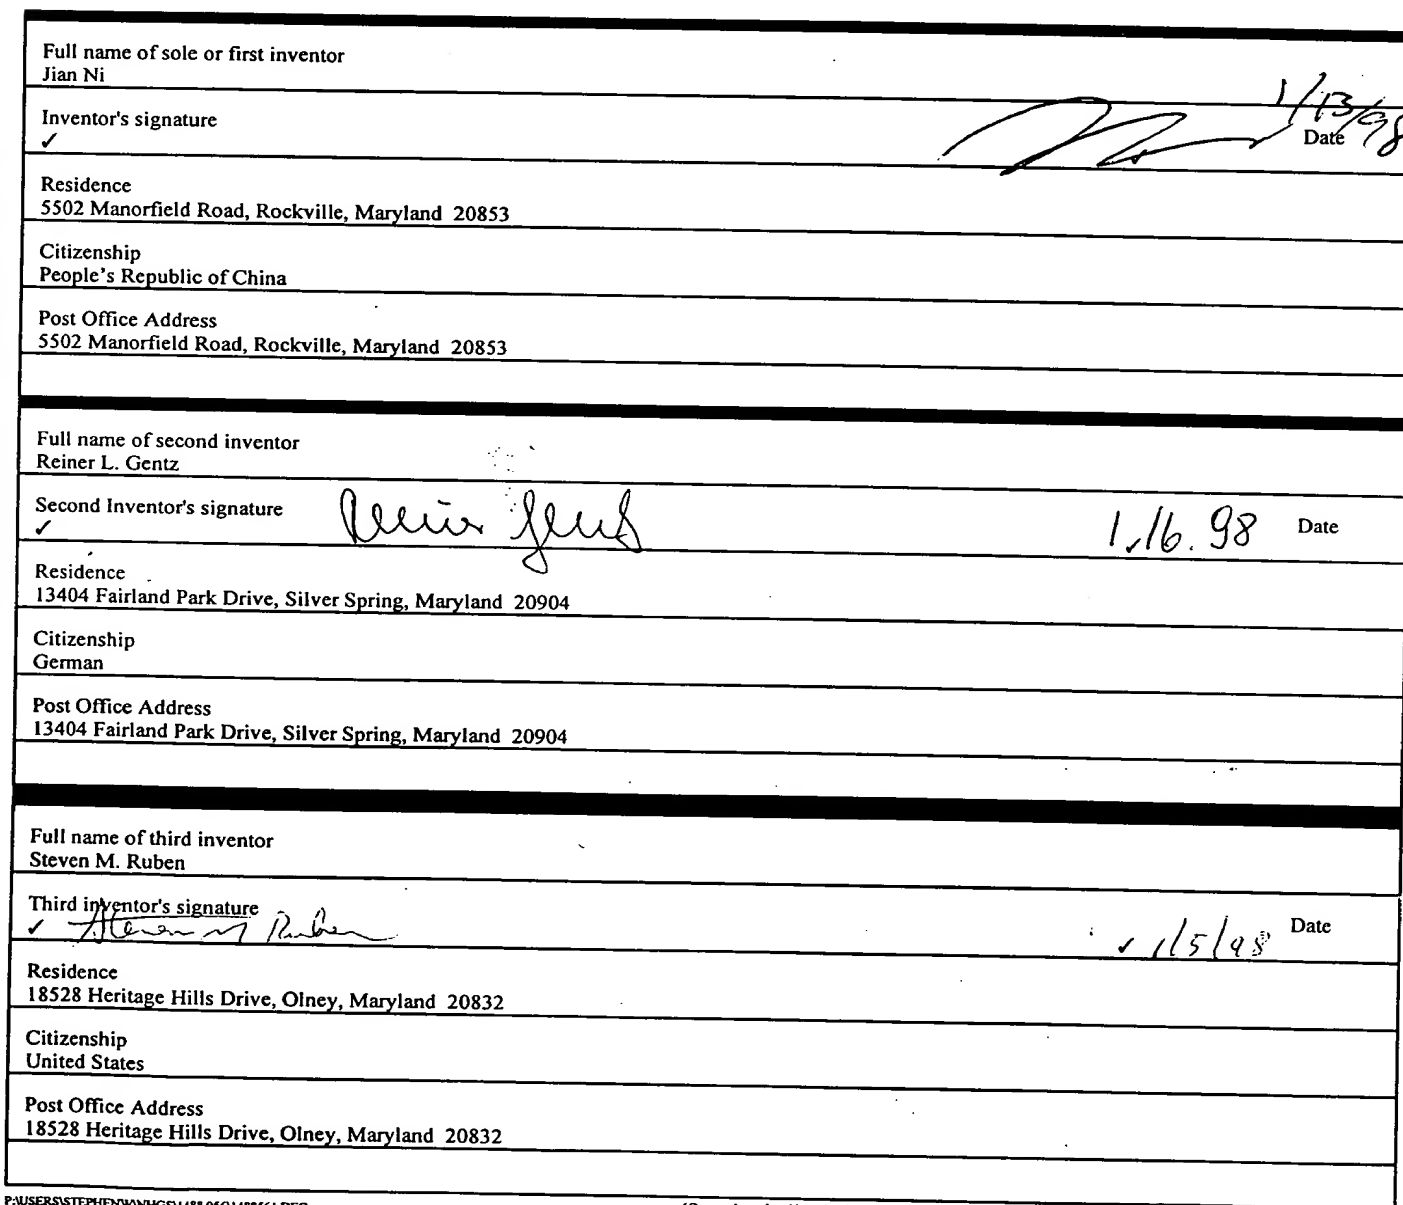 Full name of sole or first inventor
Jian Ni
1/13/98
Inventor's signature Date
✓
Residence
5502 Manorfield Road, Rockville, Maryland 20853
Citizenship
People's Republic of China
Post Office Address
5502 Manorfield Road, Rockville, Maryland 20853
Full name of second inventor
Reiner L. Gentz
Second Inventor's signature Reiner Gentz 1.16.98 Date
✓
Residence
13404 Fairland Park Drive, Silver Spring, Maryland 20904
Citizenship
German
Post Office Address
13404 Fairland Park Drive, Silver Spring, Maryland 20904
Full name of third inventor
Steven M. Ruben
Third inventor's signature Date
✓ Steven M Ruben ✓ 1/5/98
Residence
18528 Heritage Hills Drive, Olney, Maryland 20832
Citizenship
United States
Post Office Address
18528 Heritage Hills Drive, Olney, Maryland 20832